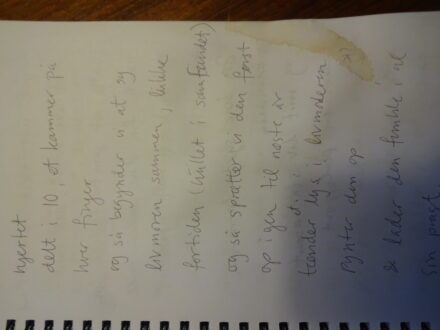 hjertet
delt i 10, et kammer på
hver finger
og så begynder vi at sy
livmoren sammen, lukke
fortiden (hullet i samfundet)
og så sprætter vi den først
op igen til næste år
tænder lys i livmoderen
pynter den op
& lader den funkle i al
sin pragt